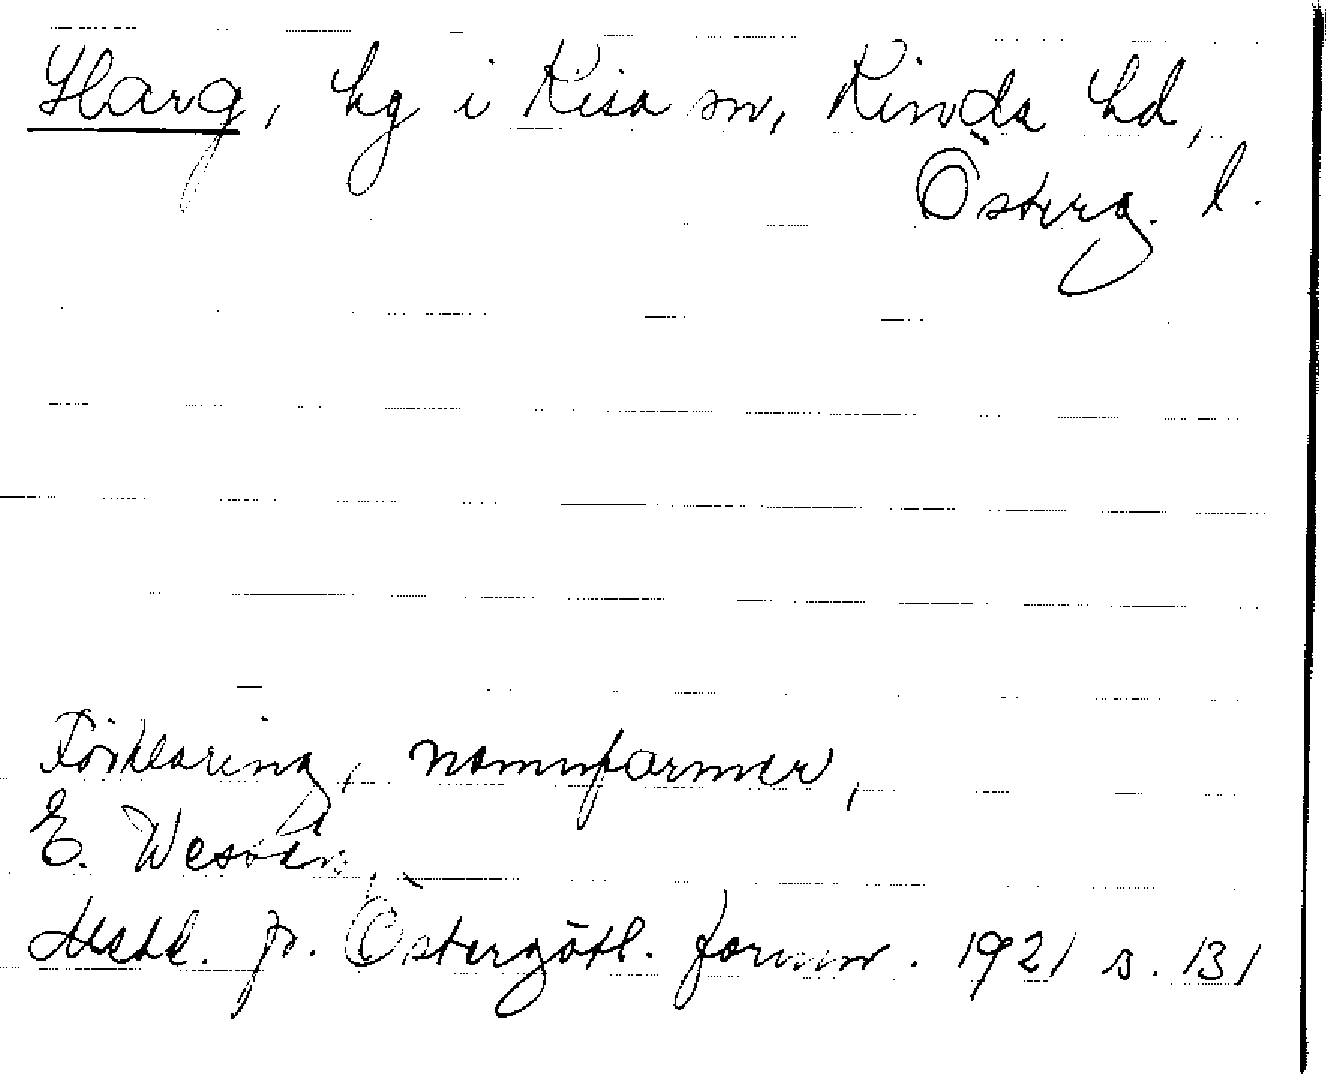 Harg, hg i Kisa sn, Kinda hd,
Österg. l.
Förklaring, namnformer,
E. Wessén,
Medd. fr. Östergötl. fornm. 1921 s. 131